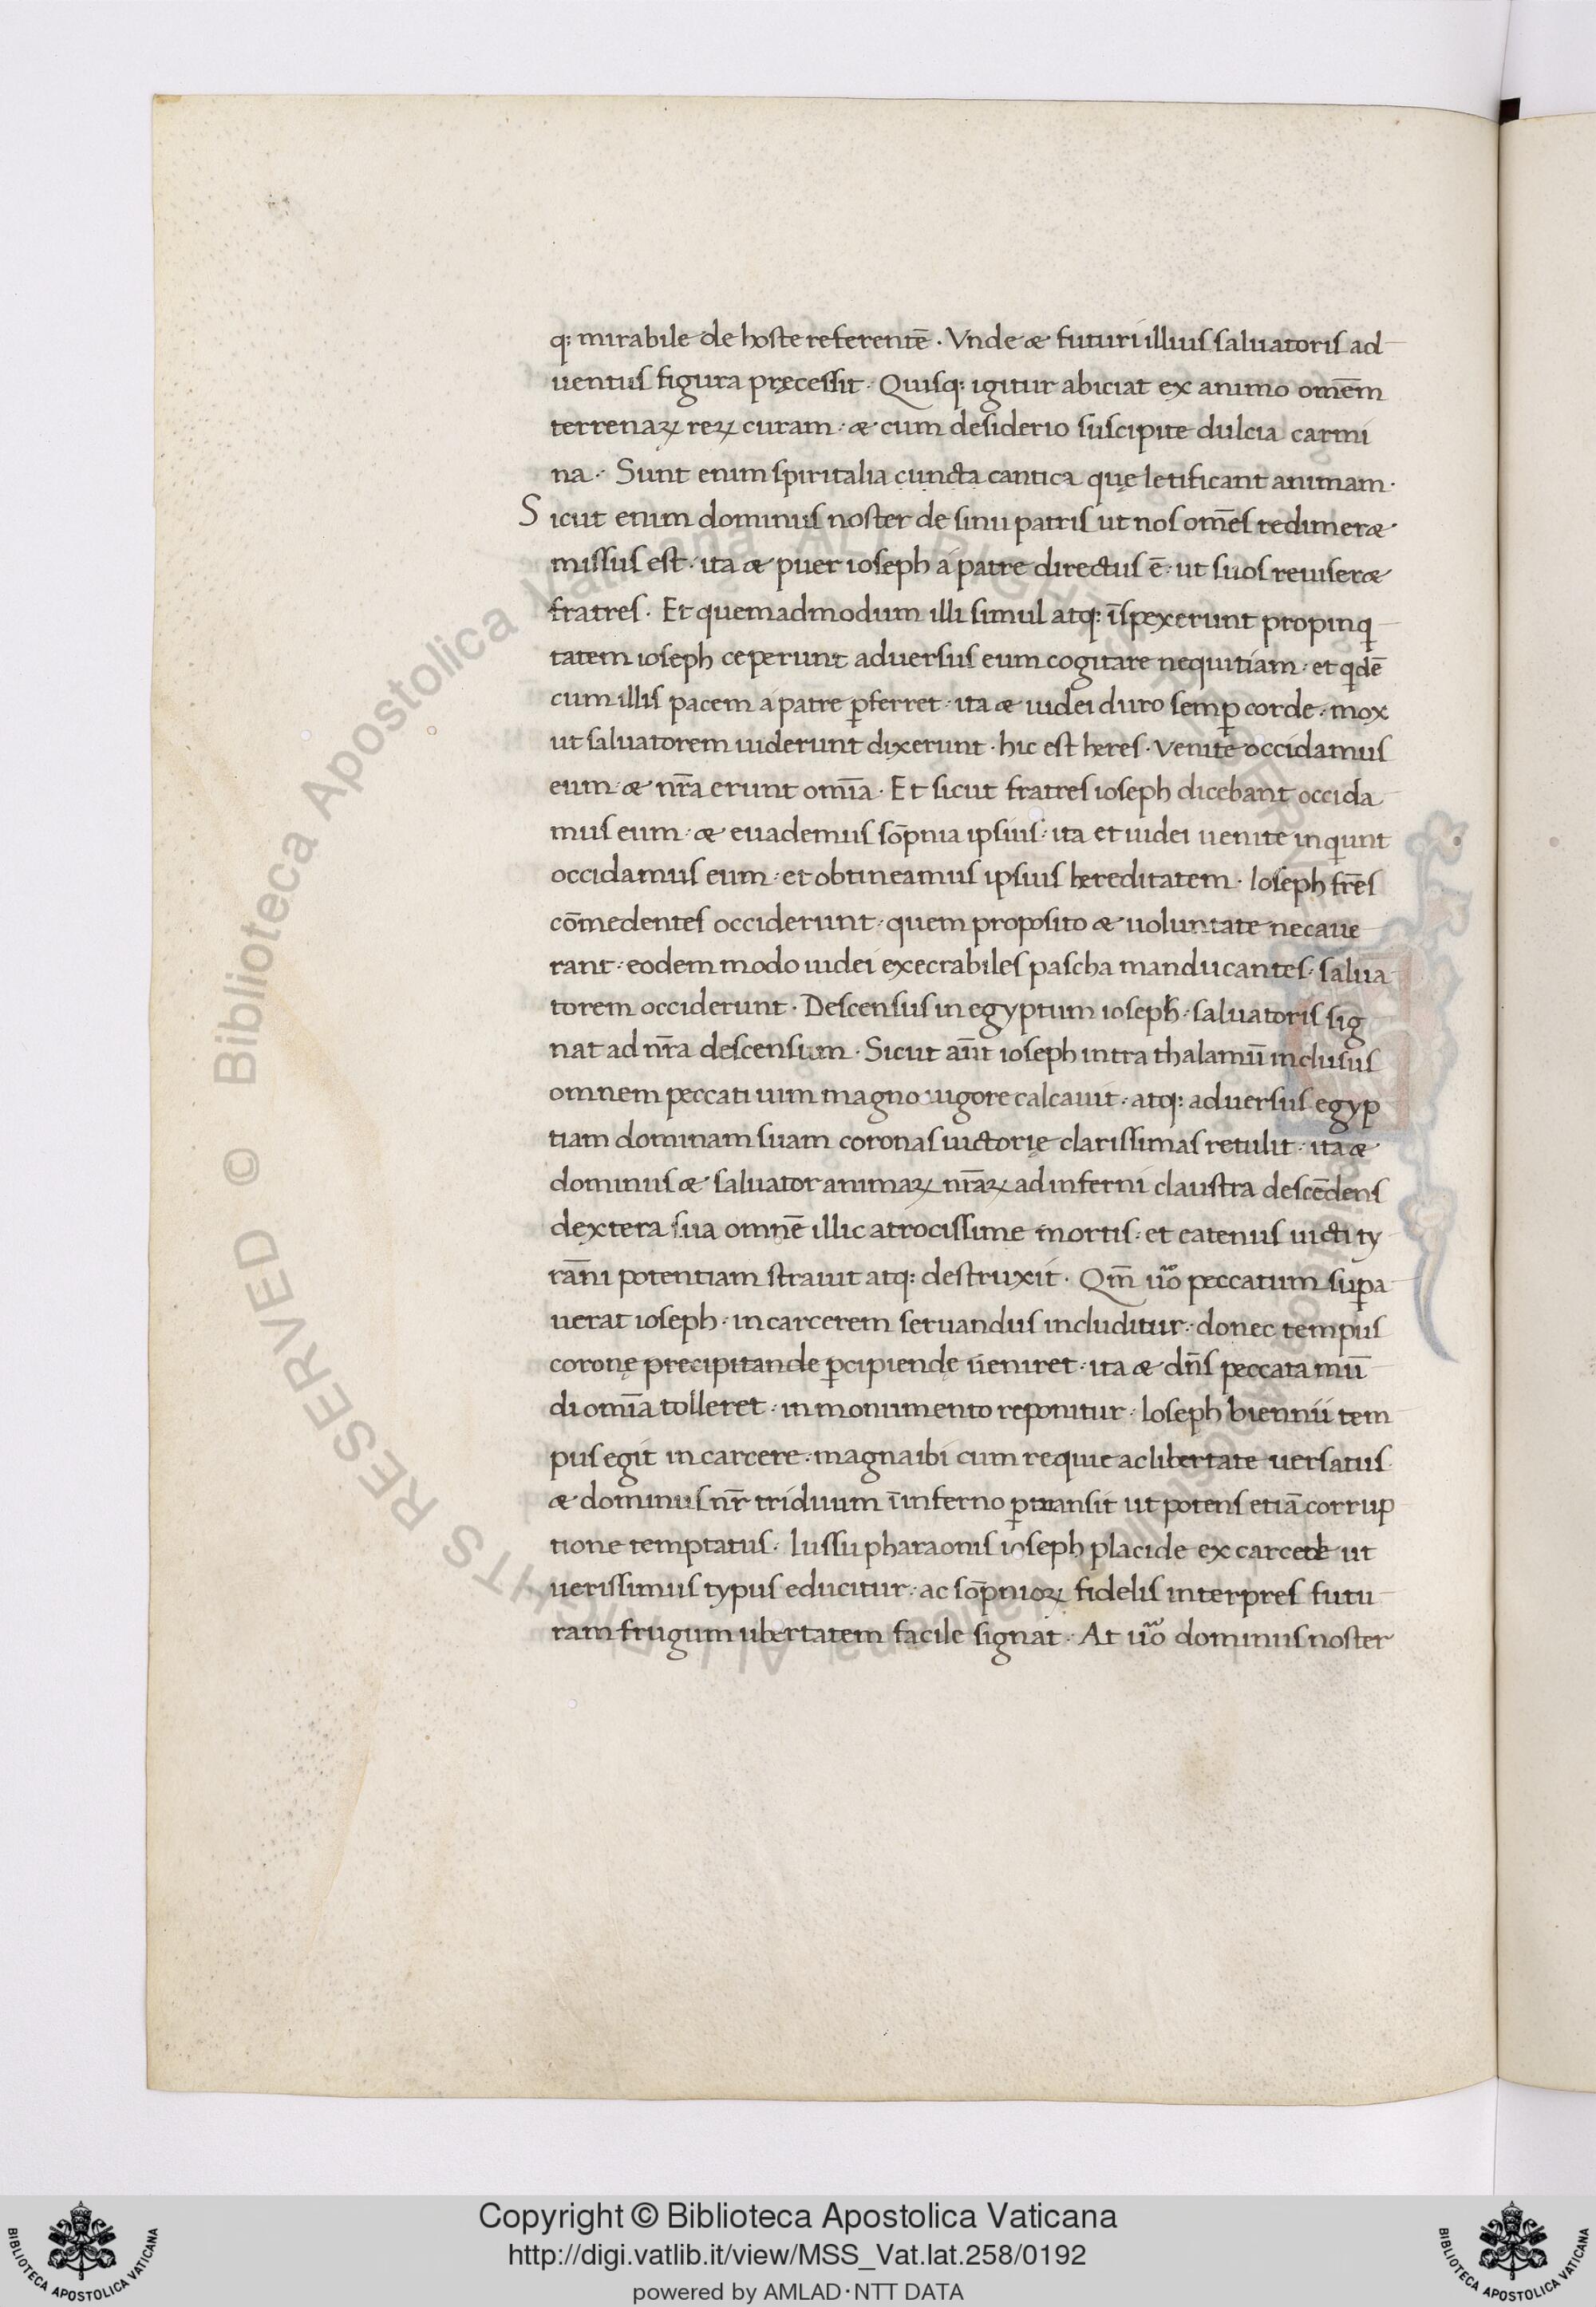 q: mirabile de hoste referentē · Vnde & futuri illius saluatoris ad
uentus figura pręcessit · Quisq: igitur abiciat ex animo omēm
terrenaꝝ reꝝ curam · & cum desiderio suscipite dulcia carmi
na · Sunt enim spiritalia cuncta cantica quę letificant animam ·
Sicut enim dominus noster de sinu patris ut nos omēs redimer&
missus est · ita & puer ioseph á patre directus ē · ut suos reuiser&
fratres · Et quemadmodum illi simul atq: īspexerunt propinq
tatem ioseph ceperunt aduersus eum cogitare nequitiam · et qdē
cum illis pacem á patre ꝑferret · ita & iudei duro semꝑ corde · mox
ut saluatorem uiderunt dixerunt · hic est heres · venite occidamus
eum · & nr̄a erunt omīa · Et sicut fratres ioseph dicebant occida
mus eum · & euademus sōpnia ipsius · ita et iudei uenite inqiunt
occidamus eum · et obtineamus ipsius hereditatem · Ioseph frēs
cōmedentes occiderunt · quem proposito & uoluntate necaue
rant · eodem modo iudei execrabiles pascha manducantes · salua
torem occiderunt · Descensus in egyptum ioseph · saluatoris sig
nat ad nr̄a descensum · Sicut aūt ioseph intra thalamū inclusus
omnem peccati uim magno uigore calcauit · atq: aduersus egyp
tiam dominam suam coronas uictorię clarissimas retulit · ita &
dominus & saluator animaꝝ nr̄aꝝ ad inferni claustra descēdens
dextera sua omnē illic atrocissime mortis · et eatenus uicti ty
rāni potentiam strauit atq: destruxit · Qm̄ uo peccatum suꝑa
uerat ioseph · in carcerem seruandus includitur · donec tempus
coronę precipitande ꝑcipiendę ueniret · ita & dn̄s peccata mū
di omīa tolleret · in monumento reponitur · Ioseph biennii tem
pus egit in carcere · magna ibi cum requie ac libertate uersatus ·
& dominus nr̄ triduum ī inferno ꝑmansit ut potens etiā corrup
tione temptatus · Iussu pharaonis ioseph placide ex carcere ut
uerissimus typus educitur · ac sōpnioꝝ fidelis interpres futu
ram frugum ubertatem facile signat · At uo dominus noster
Biblioteca Apostolica Vaticana ALL RIGHTS RESERVED ©
Copyright © Biblioteca Apostolica Vaticana
http://digi.vatlib.it/view/MSS_Vat.lat.258/0192
powered by AMLAD · NTT DATA
BIBLIOTECA APOSTOLICA VATICANA
BIBLIOTECA APOSTOLICA VATICANA